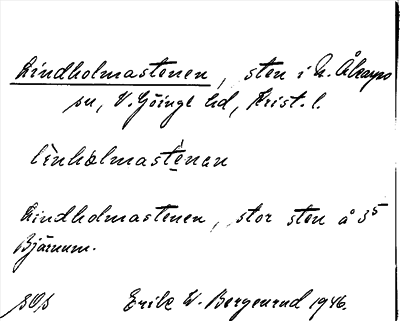 Lindholmastenen, sten i N. Åkarps
sn, V. Göinge hd, Krist. l.
lìnhòlmastenan
Lindholmastenen, stor sten å 3⁵
Bjärnum.
Erik W. Bergenrud 1946.